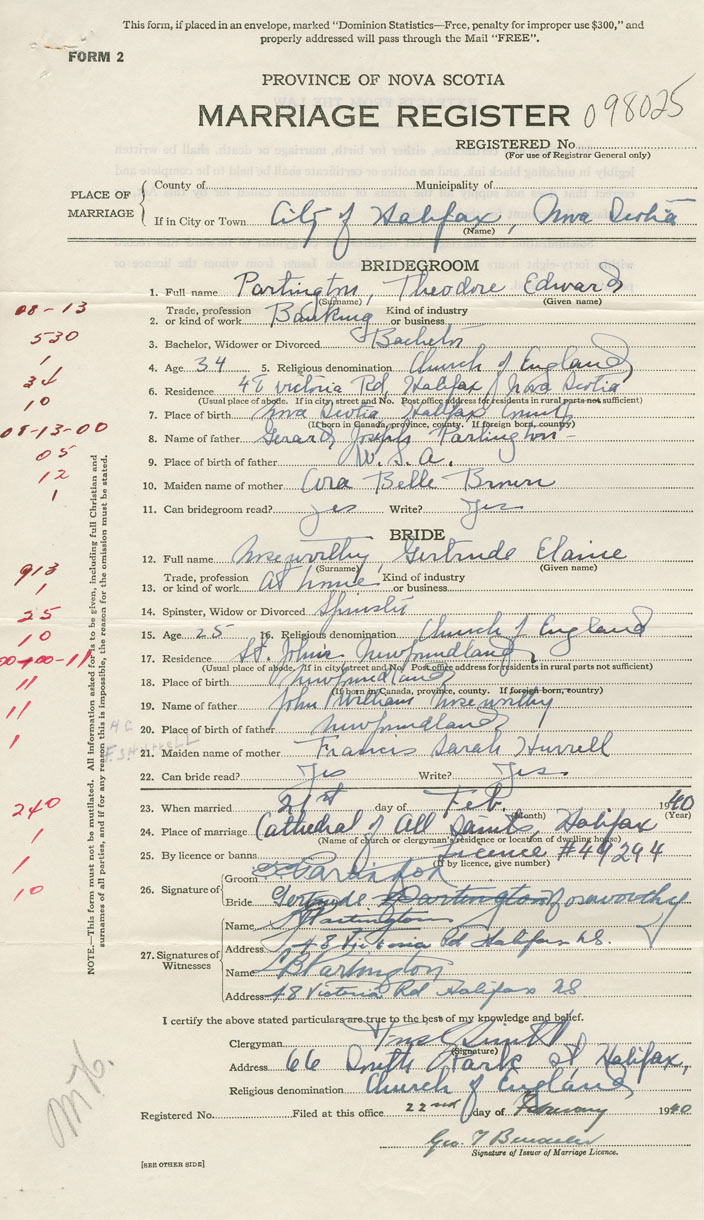 This form, if placed in an envelope, marked "Dominion Statistics—Free, penalty for improper use $300," and
properly addressed will pass through the Mail "FREE".
FORM 2
PROVINCE OF NOVA SCOTIA
MARRIAGE REGISTER 098025
REGISTERED No.
(For use of Registrar General only)
PLACE OF MARRIAGE
County of Municipality of
If in City or Town City of Halifax, Nova Scotia
(Name)
BRIDEGROOM
1. Full name Partington, Theodore Edward
(Surname) (Given name)
2. Trade, profession or kind of work Banking Kind of industry or business
3. Bachelor, Widower or Divorced Bachelor
4. Age 34 5. Religious denomination Church of England
6. Residence 48 Victoria Rd, Halifax Nova Scotia
(Usual place of abode. If in city, street and No. Post office address for residents in rural parts not sufficient)
7. Place of birth Nova Scotia Halifax County
(If born in Canada, province, county. If foreign born, country)
8. Name of father Gerard Joseph Partington
9. Place of birth of father U.S.A.
10. Maiden name of mother Cora Belle Brown
11. Can bridegroom read? Yes Write? Yes
BRIDE
12. Full name Noseworthy, Gertrude Elaine
(Surname) (Given name)
13. Trade, profession or kind of work At home Kind of industry or business
14. Spinster, Widow or Divorced Spinster
15. Age 25 16. Religious denomination Church of England
17. Residence St. Johns Newfoundland
(Usual place of abode. If in city street and No. Post office address for residents in rural parts not sufficient)
18. Place of birth Newfoundland
(If born in Canada, province, county. If foreign born, country)
19. Name of father John William Noseworthy
20. Place of birth of father Newfoundland
21. Maiden name of mother Francis Sarah Hurrell
22. Can bride read? Yes Write? Yes
23. When married 21st day of Feb. 1940
(Month) (Year)
24. Place of marriage Cathedral of All Saints, Halifax
(Name of church or clergyman's residence or location of dwelling house)
25. By licence or banns Licence #49294
(If by licence, give number)
26. Signature of
Groom Partington
Bride Gertrude Partington Noseworthy
27. Signatures of Witnesses
Name Partington
Address 48 Victoria Rd Halifax NS.
Name Partington
Address 48 Victoria Rd Halifax NS
I certify the above stated particulars are true to the best of my knowledge and belief.
Clergyman
(Signature)
Address 66 South Park St, Halifax,
Religious denomination Church of England
Registered No. Filed at this office 22nd day of February 1940
Geo T
Signature of Issuer of Marriage Licence.
[SEE OTHER SIDE]
NOTE.—This form must not be mutilated. All information asked for is to be given, including full Christian and
surnames of all parties, and if for any reason this is impossible, the reason for the omission must be stated.
08-13
530
1
34
10
08-13-00
05
12
1
913
1
25
10
00-00-11
11
11
1
240
1
1
10